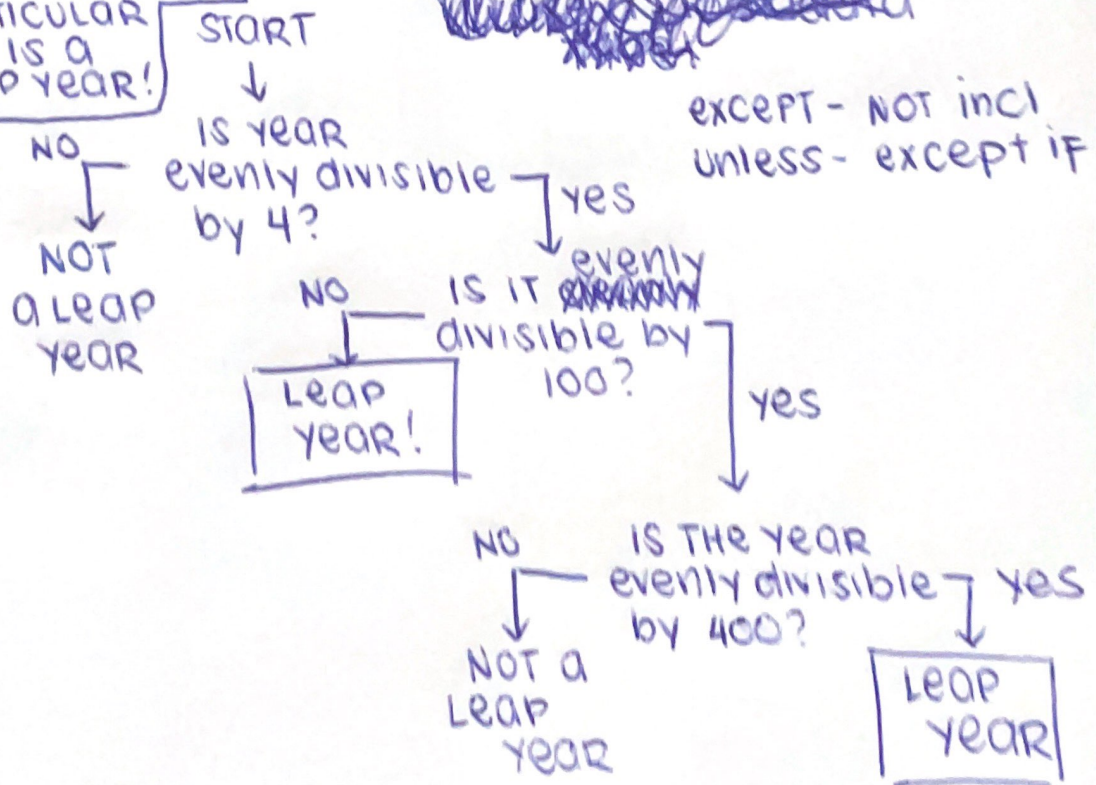 ICULAR
IS a
P YEAR!
START
IS YEAR
evenly divisible
by 4?
NO
NOT
a Leap
Year
yes
except - NOT incl
unless - except if
IS IT evenly
divisible by
100?
NO
Leap
Year!
yes
IS THE YEAR
evenly divisible
by 400?
NO
NOT a
Leap
Year
yes
Leap
Year